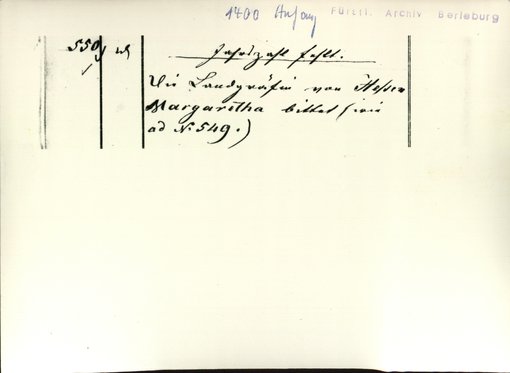 1400 Anfang Fürstl. Archiv Berleburg
550
Jahrszahl fehlt.
Die Landgräfin von Hessen
Margaretha bittet (wie
ad No 549.)